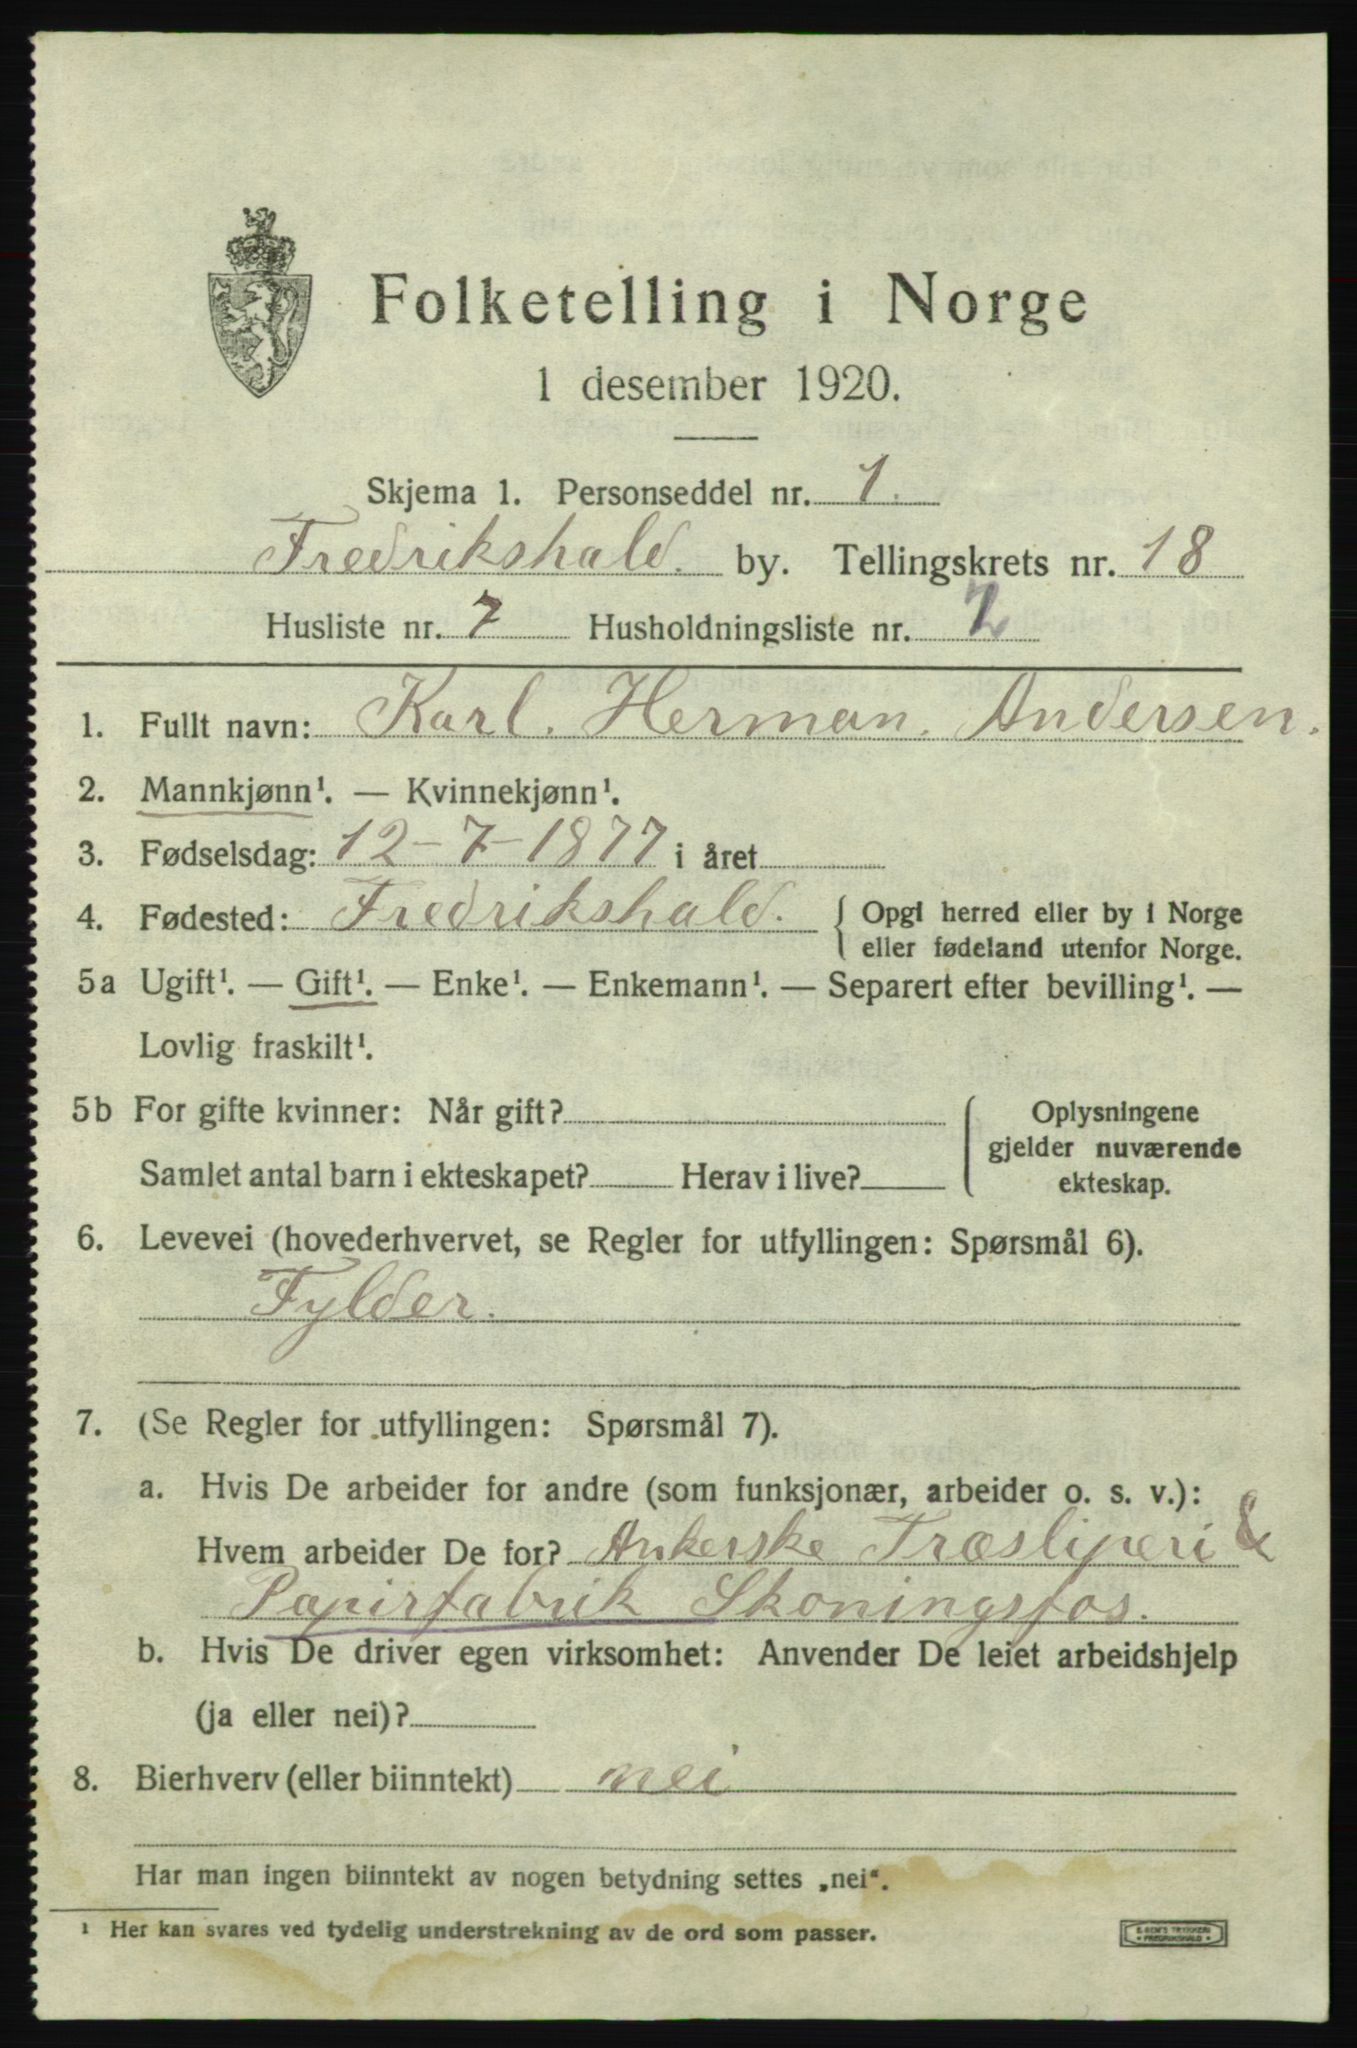 Folketelling i Norge
1 desember 1920.
Skjema 1. Personseddel nr. 1.
Fredrikshald. by. Tellingskrets nr. 18
Husliste nr. 7 Husholdningsliste nr. 2
1. Fullt navn: Karl. Herman. Andersen.
2. Mannkjønn¹. — Kvinnekjønn¹.
3. Fødselsdag: 12-7-1877 i året
4. Fødested: Fredrikshald. { Opgi herred eller by i Norge
eller fødeland utenfor Norge.
5a Ugift¹. — Gift¹. — Enke¹. — Enkemann¹. — Separert efter bevilling¹. —
Lovlig fraskilt¹.
5b For gifte kvinner: Når gift? { Oplysningene
gjelder nuværende
Samlet antal barn i ekteskapet? Herav i live? ekteskap.
6. Levevei (hovederhvervet, se Regler for utfyllingen: Spørsmål 6).
Fylder.
7. (Se Regler for utfyllingen: Spørsmål 7).
a. Hvis De arbeider for andre (som funksjonær, arbeider o. s. v.):
Hvem arbeider De for? Ankerske Træsliperi &
Papirfabrik Skoningsfos.
b. Hvis De driver egen virksomhet: Anvender De leiet arbeidshjelp
(ja eller nei)?
8. Bierhverv (eller biinntekt) nei
Har man ingen biinntekt av nogen betydning settes „nei“.
¹ Her kan svares ved tydelig understrekning av de ord som passer.
FREDRIKSHALD